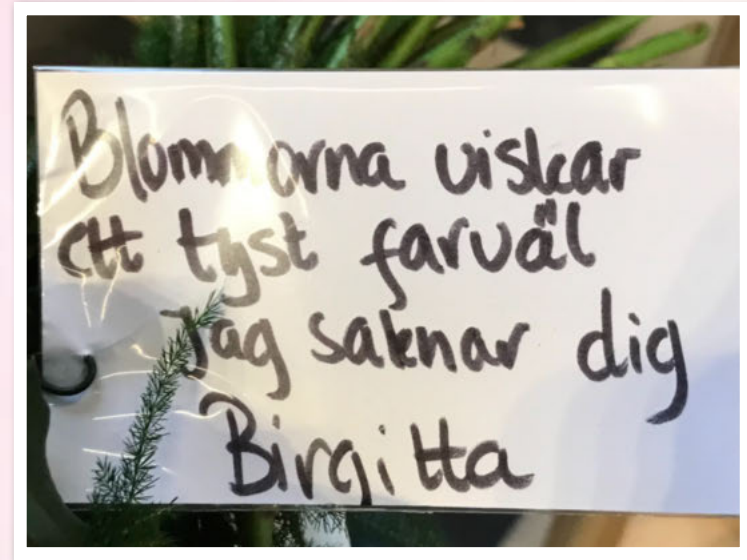 Blommorna viskar
ett tyst farväl
Jag saknar dig
Birgitta